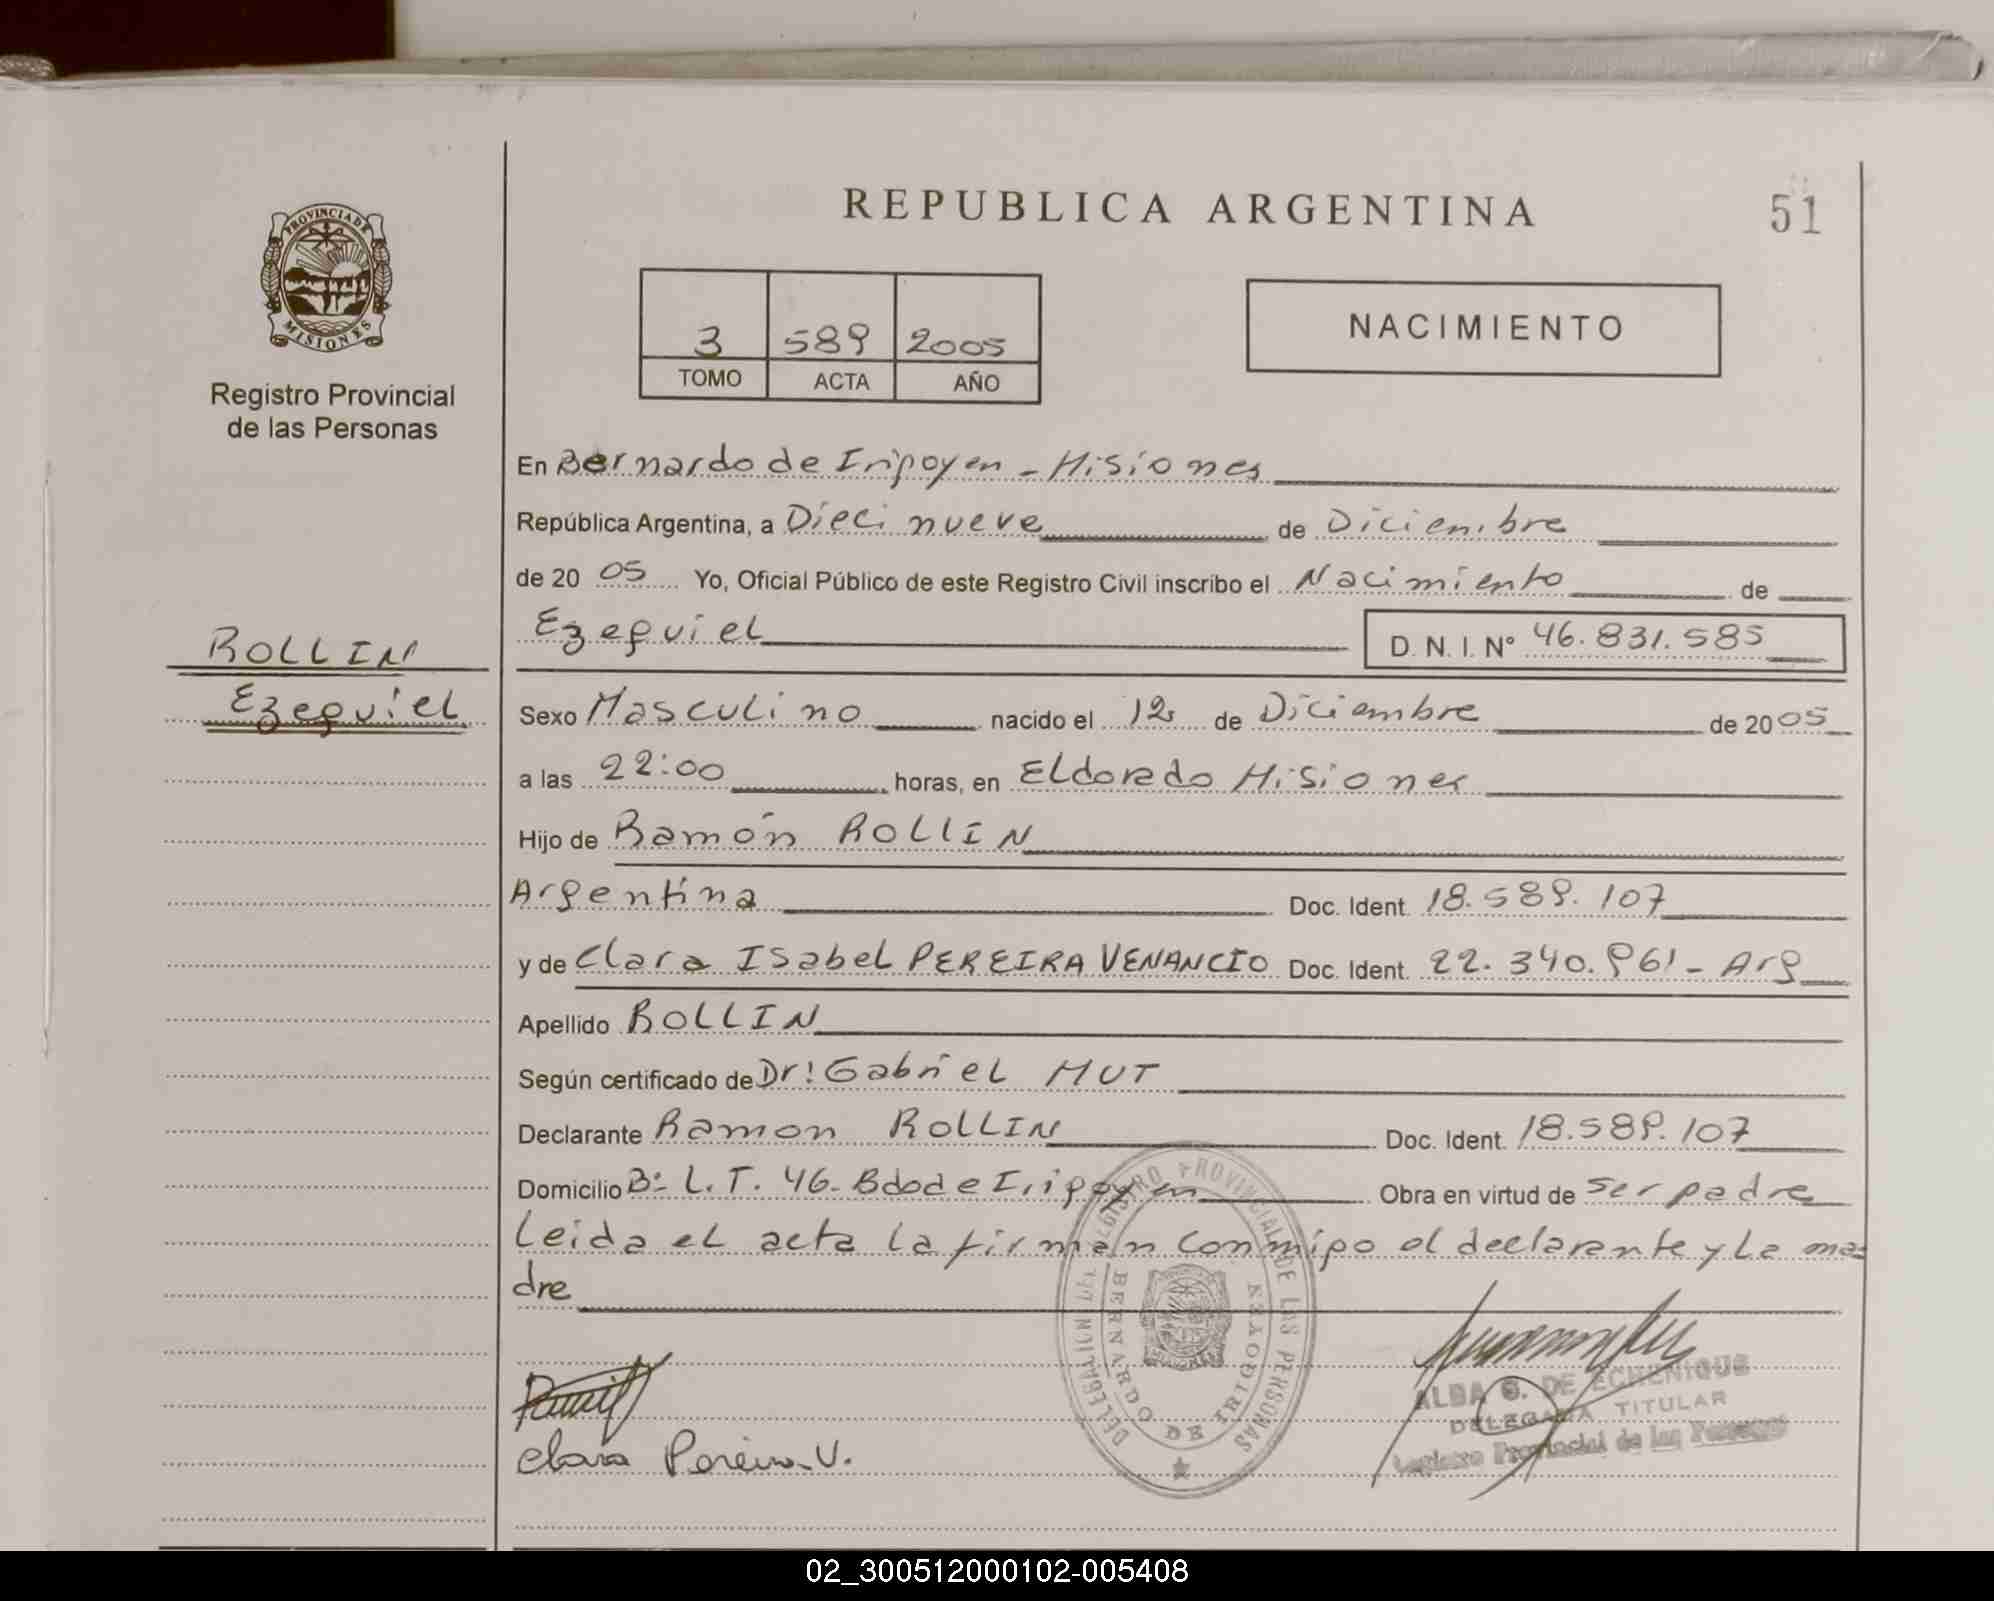 REPUBLICA ARGENTINA
51
PROVINCIA DE
MISIONES
Registro Provincial
de las Personas
3 589 2005
TOMO ACTA AÑO
NACIMIENTO
En Bernardo de Irigoyen - Misiones
República Argentina, a Dieci nueve de Diciembre
de 20 05 Yo, Oficial Público de este Registro Civil inscribo el Nacimiento de
Ezequiel D. N. I. Nº 46.831.585
ROLLIN
Ezequiel
Sexo Masculino nacido el 12 de Diciembre de 20 05
a las 22:00 horas, en Eldorado Misiones
Hijo de Ramón ROLLIN
Argentina Doc. Ident. 18.589.107
y de Clara ISabel PEREIRA VENANCIO Doc. Ident. 22.340.961 - Arg
Apellido ROLLIN
Según certificado de Dr: Gabriel MUT
Declarante Ramon ROLLIN Doc. Ident. 18.589.107
Domicilio Bº L.T. 46. Bdo de Irigoyen Obra en virtud de ser padre
Leida el acta la firman conmigo el declarante y la ma=
dre
REGISTRO PROVINCIAL DE LAS PERSONAS
BERNARDO DE IRIGOYEN
Clara Pereira V.
ALBA DE ECHENIQUE
DELEGADA TITULAR
Registro Provincial de las Personas
02_300512000102-005408